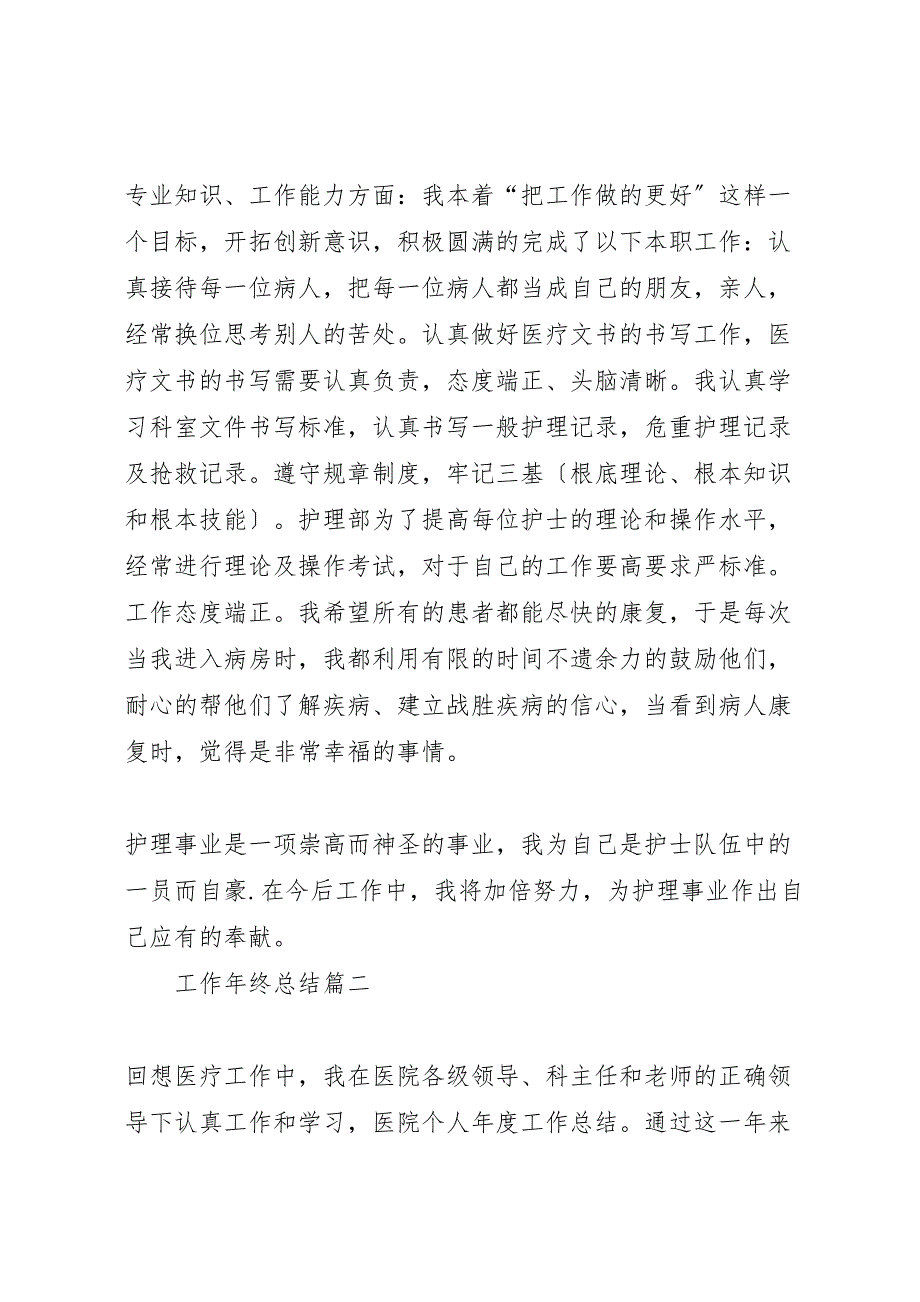 专业知识、工作能力方面：我本着“把工作做的更好〞这样一
个目标，开拓创新意识，积极圆满的完成了以下本职工作：认
真接待每一位病人，把每一位病人都当成自己的朋友，亲人，
经常换位思考别人的苦处。认真做好医疗文书的书写工作，医
疗文书的书写需要认真负责，态度端正、头脑清晰。我认真学
习科室文件书写标准，认真书写一般护理记录，危重护理记录
及抢救记录。遵守规章制度，牢记三基〔根底理论、根本知识
和根本技能〕。护理部为了提高每位护士的理论和操作水平，
经常进行理论及操作考试，对于自己的工作要高要求严标准。
工作态度端正。我希望所有的患者都能尽快的康复，于是每次
当我进入病房时，我都利用有限的时间不遗余力的鼓励他们，
耐心的帮他们了解疾病、建立战胜疾病的信心，当看到病人康
复时，觉得是非常幸福的事情。
护理事业是一项崇高而神圣的事业，我为自己是护士队伍中的
一员而自豪.在今后工作中，我将加倍努力，为护理事业作出自
己应有的奉献。
工作年终总结篇二
回想医疗工作中，我在医院各级领导、科主任和老师的正确领
导下认真工作和学习，医院个人年度工作总结。通过这一年来